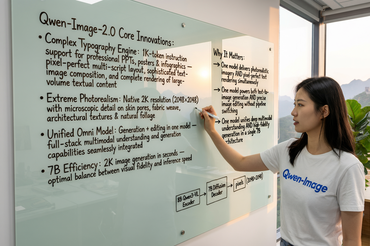 Qwen-Image-2.0 Core Innovations:
• Complex Typography Engine: 1K-token instruction
support for professional PPTs, posters & infographics —
pixel-perfect multi-script layout, sophisticated text-
image composition, and complete rendering of large-
volume textual content
• Extreme Photorealism: Native 2K resolution (2048×2048)
with microscopic detail on skin pores, fabric weave,
architectural textures & natural foliage
• Unified Omni Model: Generation + editing in one model —
full-stack multimodal understanding and generation
capabilities seamlessly integrated
• 7B Efficiency: 2K image generation in seconds —
optimal balance between visual fidelity and inference speed
Why It Matters:
One model delivers photorealistic
imagery AND pixel-perfect text
rendering simultaneously
One model powers both text-to-
image generation AND precise
image editing without pipeline
One model unifies deep multimodal
understanding AND high-fidelity
generation in a single 7B
architecture
8B Qwen3-VL
Encoder
7B Diffusion
Decoder
pixels
(2048×2048)
Qwen-Image